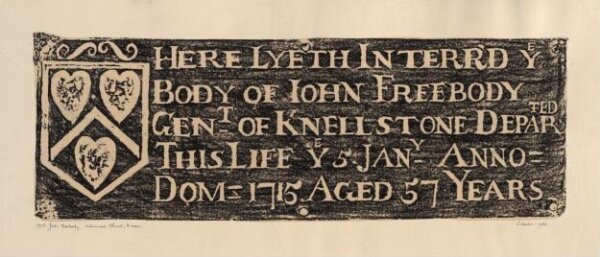 HERE LYETH INTERR'D Yᴱ
BODY OF IOHN FREEBODY
GENᵀ OF KNELLSTONE DEPARᵀᴱᴰ
THIS LIFE Yᴱ 5 JANʸ ANNO=
DOM= 1715 AGED 57 YEARS